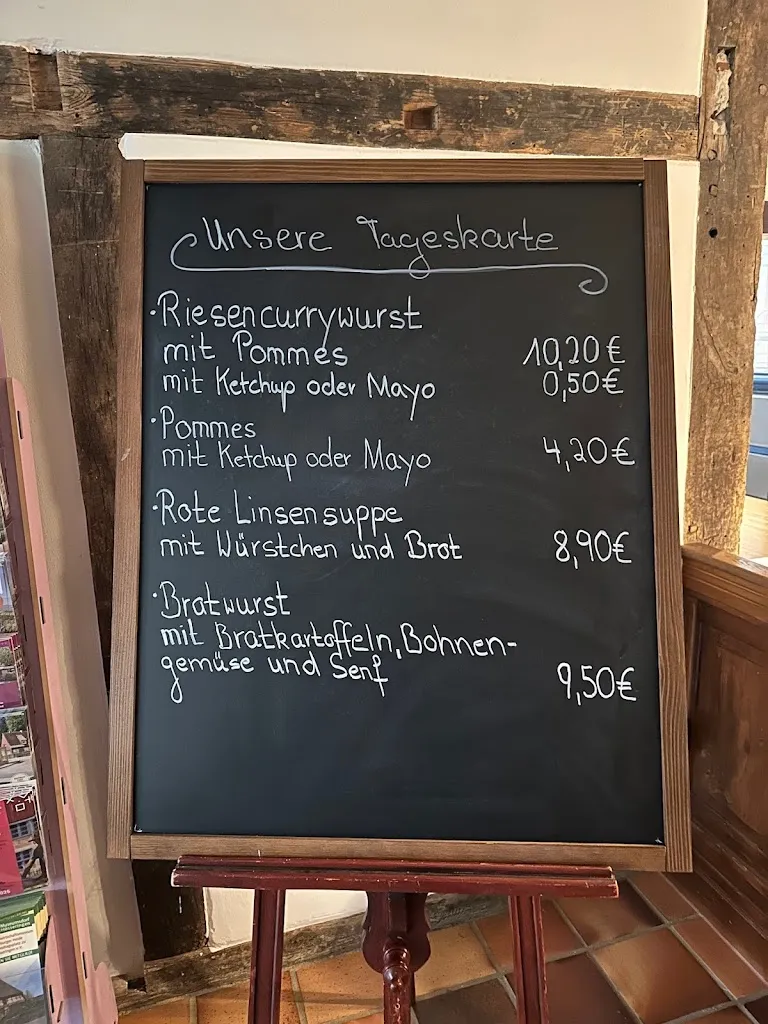 Unsere Tageskarte
·Riesencurrywurst
mit Pommes 10,20€
mit Ketchup oder Mayo 0,50€
·Pommes
mit Ketchup oder Mayo 4,20€
·Rote Linsensuppe
mit Würstchen und Brot 8,90€
·Bratwurst
mit Bratkartoffeln, Bohnen-
gemüse und Senf 9,50€